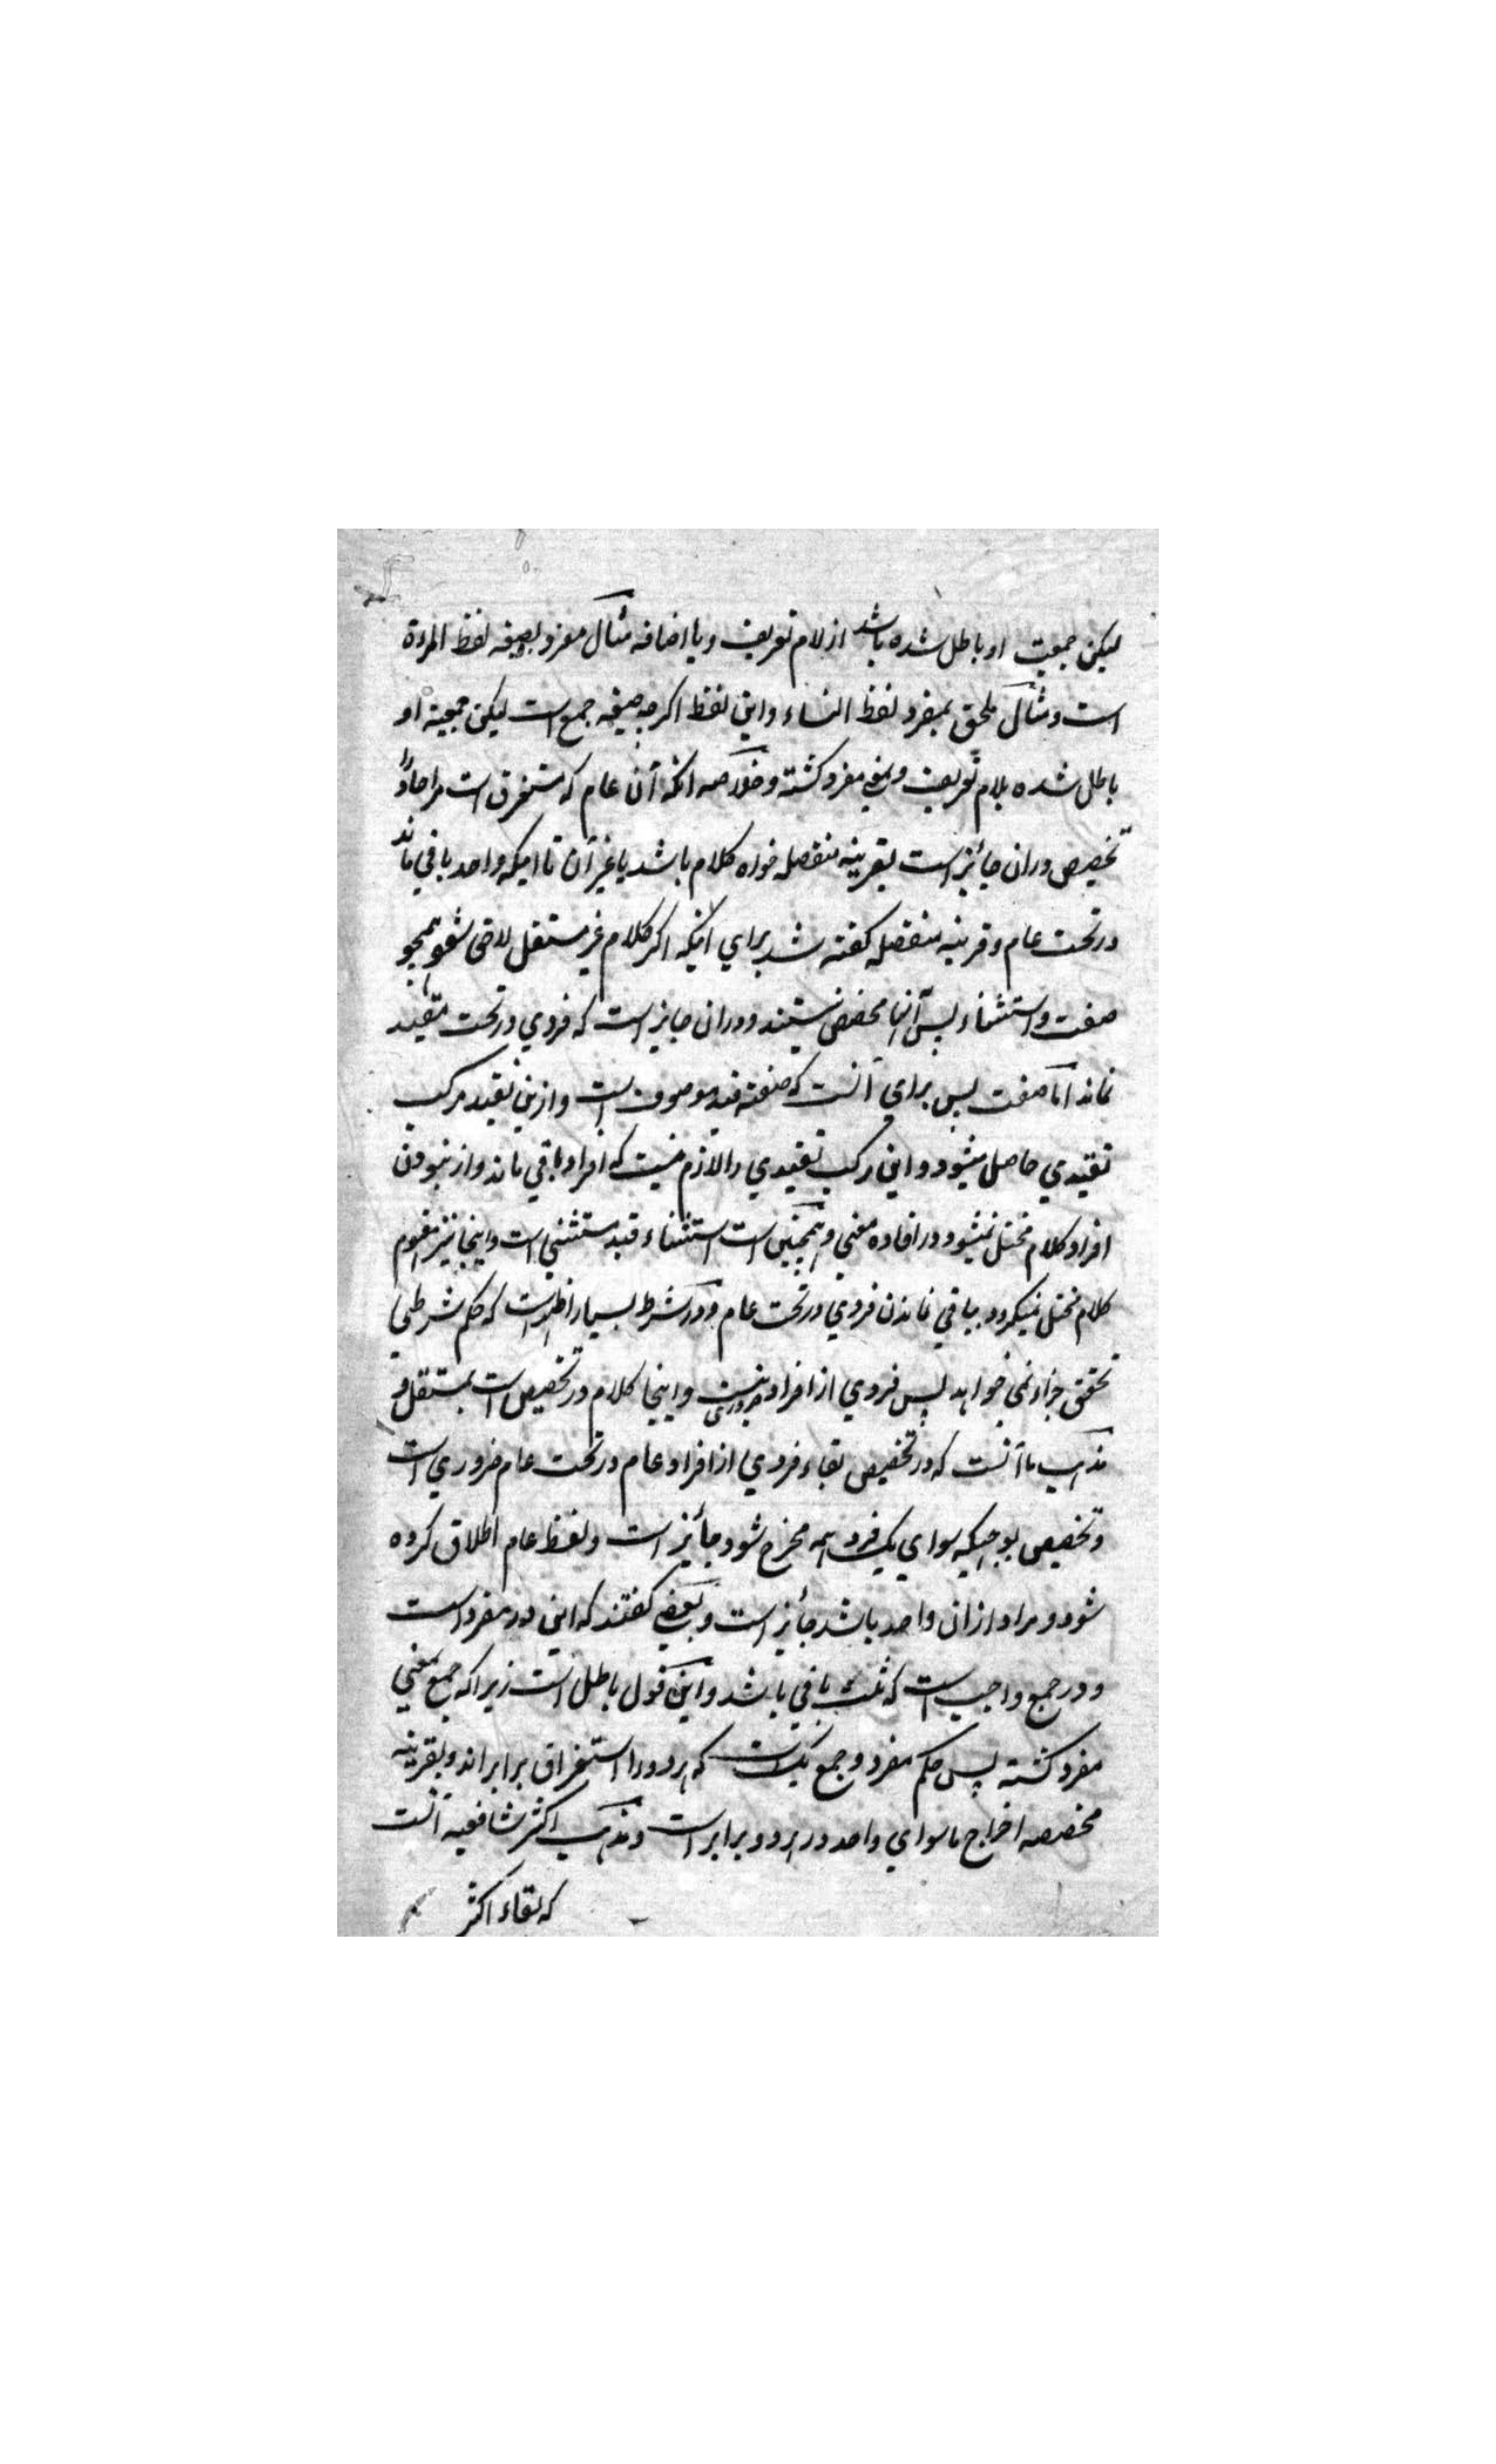 لیکن جمعیت او باطل شده باشد از لام تعریف و یا اضافه مثال مفرد بصیغه لفظ المرءة
است و مثال ملحق بمفرد لفظ النساء و این لفظ اکرچه صیغه جمع است لیکن جمعیة او
باطل شده بلام تعریف و بمعنی مفرد کشته و خلاصه انکه آن عام که مستغرق است مر احاد را
تخصیص دران جائز است بقرینه منفصله خواه کلام باشد یا غیر آن تا اینکه واحد باقی ماند
در تحت عام و قرینه منفصله کفته شد برای انکه اکر کلام غیر مستقل لاحق شود همچو
صفت و استثناء پس آنها مخصص نیستند و دران جایز است که فردی در تحت مقید
نماند اما صفت پس برای آنست که صفته قید موصوف است و ازین تقید مرکب
تقیدی حاصل میشود و این مرکب تقیدی را لازم نیست که افراد باقی ماند و از نبودن
افراد کلام مختل نمیشود در افاده معنی و همچنین است استثناء قید مستثنی است و اینجا نیز مفهوم
کلام مختل نمیکردد بباقی نماندن فردی در تحت عام و در شرط بسیار اظهر است که حکم شرطی
تحقق جزاء نمی خواهد پس فردی از افراد ضروری نیست و اینجا کلام در تخصیص است بمستقل و
مذهب ما آنست که در تخصیص بقاء فردی از افراد عام در تحت عام ضروری است
و تخصیص بوجهیکه سوای یک فرد همه مخرج شود جائز است و لفظ عام اطلاق کرده
شود و مراد ازان واحد باشد جائز است و بعضی کفتند که این در مفرد است
و در جمع واجب است که ثلث باقی باشد و این قول باطل است زیرا که جمع بمعنی
مفرد کشته پس حکم مفرد و جمع یکست که هر دو را استغراق برابر اند و بقرینه
مخصصه اخراج ماسوای واحد در هر دو برابر است و مذهب اکثر شافعیه آنست
که بقاء اکثر